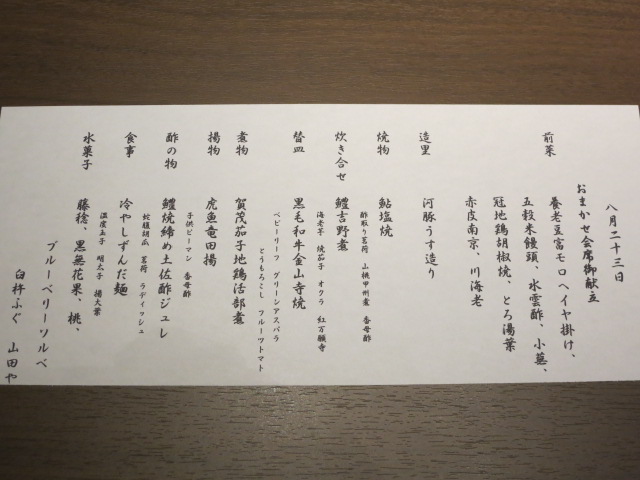 八月二十三日
おまかせ会席御献立
前菜
養老豆富モロヘイヤ掛け、
五穀米饅頭、水雲酢、小蕪、
冠地鶏胡椒焼、とろ湯葉
赤皮南京、川海老
造里
河豚うす造り
焼物
鮎塩焼
酢取り茗荷 山桃甲州煮 香母酢
炊き合せ
鱧吉野煮
海老芋 焼茄子 オクラ 紅万願寺
替皿
黒毛和牛金山寺焼
ベビーリーフ グリーンアスパラ
とうもろこし フルーツトマト
煮物
賀茂茄子地鶏活部煮
揚物
虎魚竜田揚
子供ピーマン 香母酢
酢の物
鱧焼締め土佐酢ジュレ
蛇腹胡瓜 茗荷 ラディッシュ
食事
冷やしずんだ麺
温度玉子 明太子 揚大葉
水菓子
藤稔、黒無花果、桃、
ブルーベリーソルベ
臼杵ふぐ 山田や